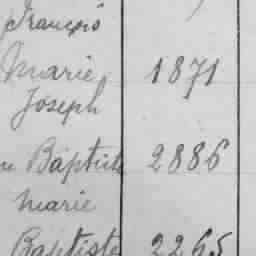 François
Marie 1871
Joseph
Baptiste 2886
Marie
Baptiste 2265